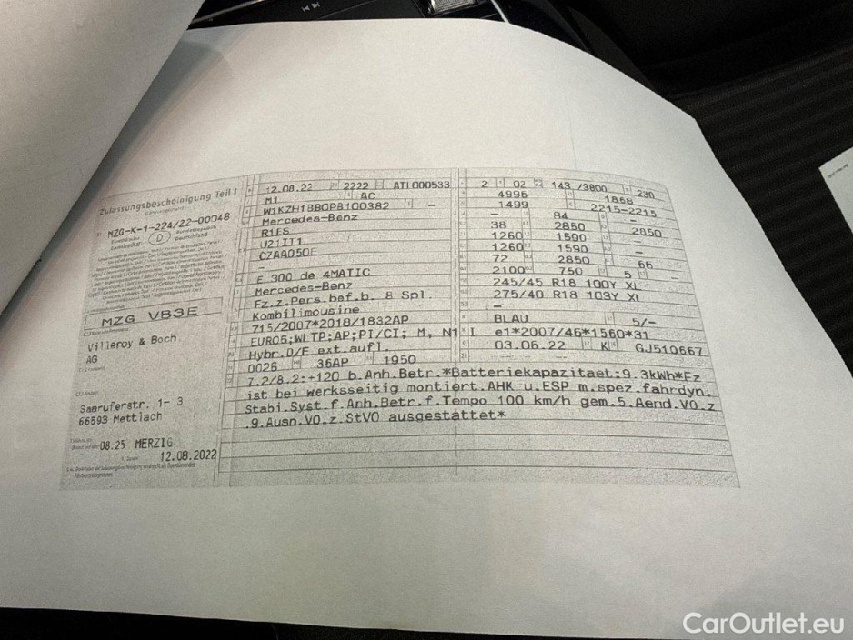 Zulassungsbescheinigung Teil I
MZG-K-1-224/22-00048
D
MZG VB3E
Villeroy & Boch
AG
Saaruferstr. 1- 3
66693 Mettlach
08.25 MERZIG
12.08.2022
12.08.22 2222 ATL000533
M1 AC
W1KZH1BB0PB100382 -
Mercedes-Benz
R1ES
CZAA050F
-
E 300 de 4MATIC
Mercedes-Benz
Fz.z.Pers.bef.b. 8 Spl.
Kombilimousine
715/2007*2018/1832AP
EURO6;WLTP;AP;PI/CI; M, N1 I
Hybr.D/F ext.aufl.
0026 36AP 1950
2 02 143 /3800 230
4996 1868
1499 2215-2215
- 84 -
38 2850 2850
1260 1590 -
1260 1590 -
72 2850 66
2100 750 5 -
245/45 R18 100Y XL
275/40 R18 103Y XL
-
BLAU 5/-
e1*2007/46*1560*31
03.06.22 K GJ510667
-
7.2/8.2:+120 b.Anh.Betr.*Batteriekapazitaet:9.3kWh*Fz
ist bei werksseitig montiert.AHK u.ESP m.spez.fahrdyn.
Stabi.Syst.f.Anh.Betr.f.Tempo 100 km/h gem.5.Aend.VO.z
.9.Ausn.VO.z.StVO ausgestattet*
CarOutlet.eu